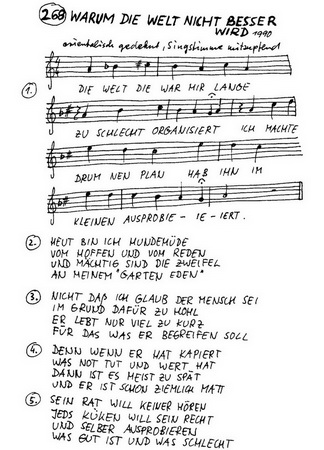 268 WARUM DIE WELT NICHT BESSER
WIRD 1990
orientalisch gedehnt, Singstimme mitzupfend
1. DIE WELT DIE WAR MIR LANGE
ZU SCHLECHT ORGANISIERT ICH MACHTE
DRUM NEN PLAN HAB IHN IM
KLEINEN AUSPROBIE - IE - IERT.
2. HEUT BIN ICH HUNDEMÜDE
VOM HOFFEN UND VOM REDEN
UND MÄCHTIG SIND DIE ZWEIFEL
AN MEINEM "GARTEN EDEN"
3. NICHT DAß ICH GLAUB DER MENSCH SEI
IM GRUND DAFÜR ZU HOHL
ER LEBT NUR VIEL ZU KURZ
FÜR DAS WAS ER BEGREIFEN SOLL
4. DENN WENN ER HAT KAPIERT
WAS NOT TUT UND WERT HAT
DANN IST ES MEIST ZU SPÄT
UND ER IST SCHON ZIEMLICH MATT
5. SEIN RAT WILL KEINER HÖREN
JEDS KÜKEN WILL SEIN RECHT
UND SELBER AUSPROBIEREN
WAS GUT IST UND WAS SCHLECHT